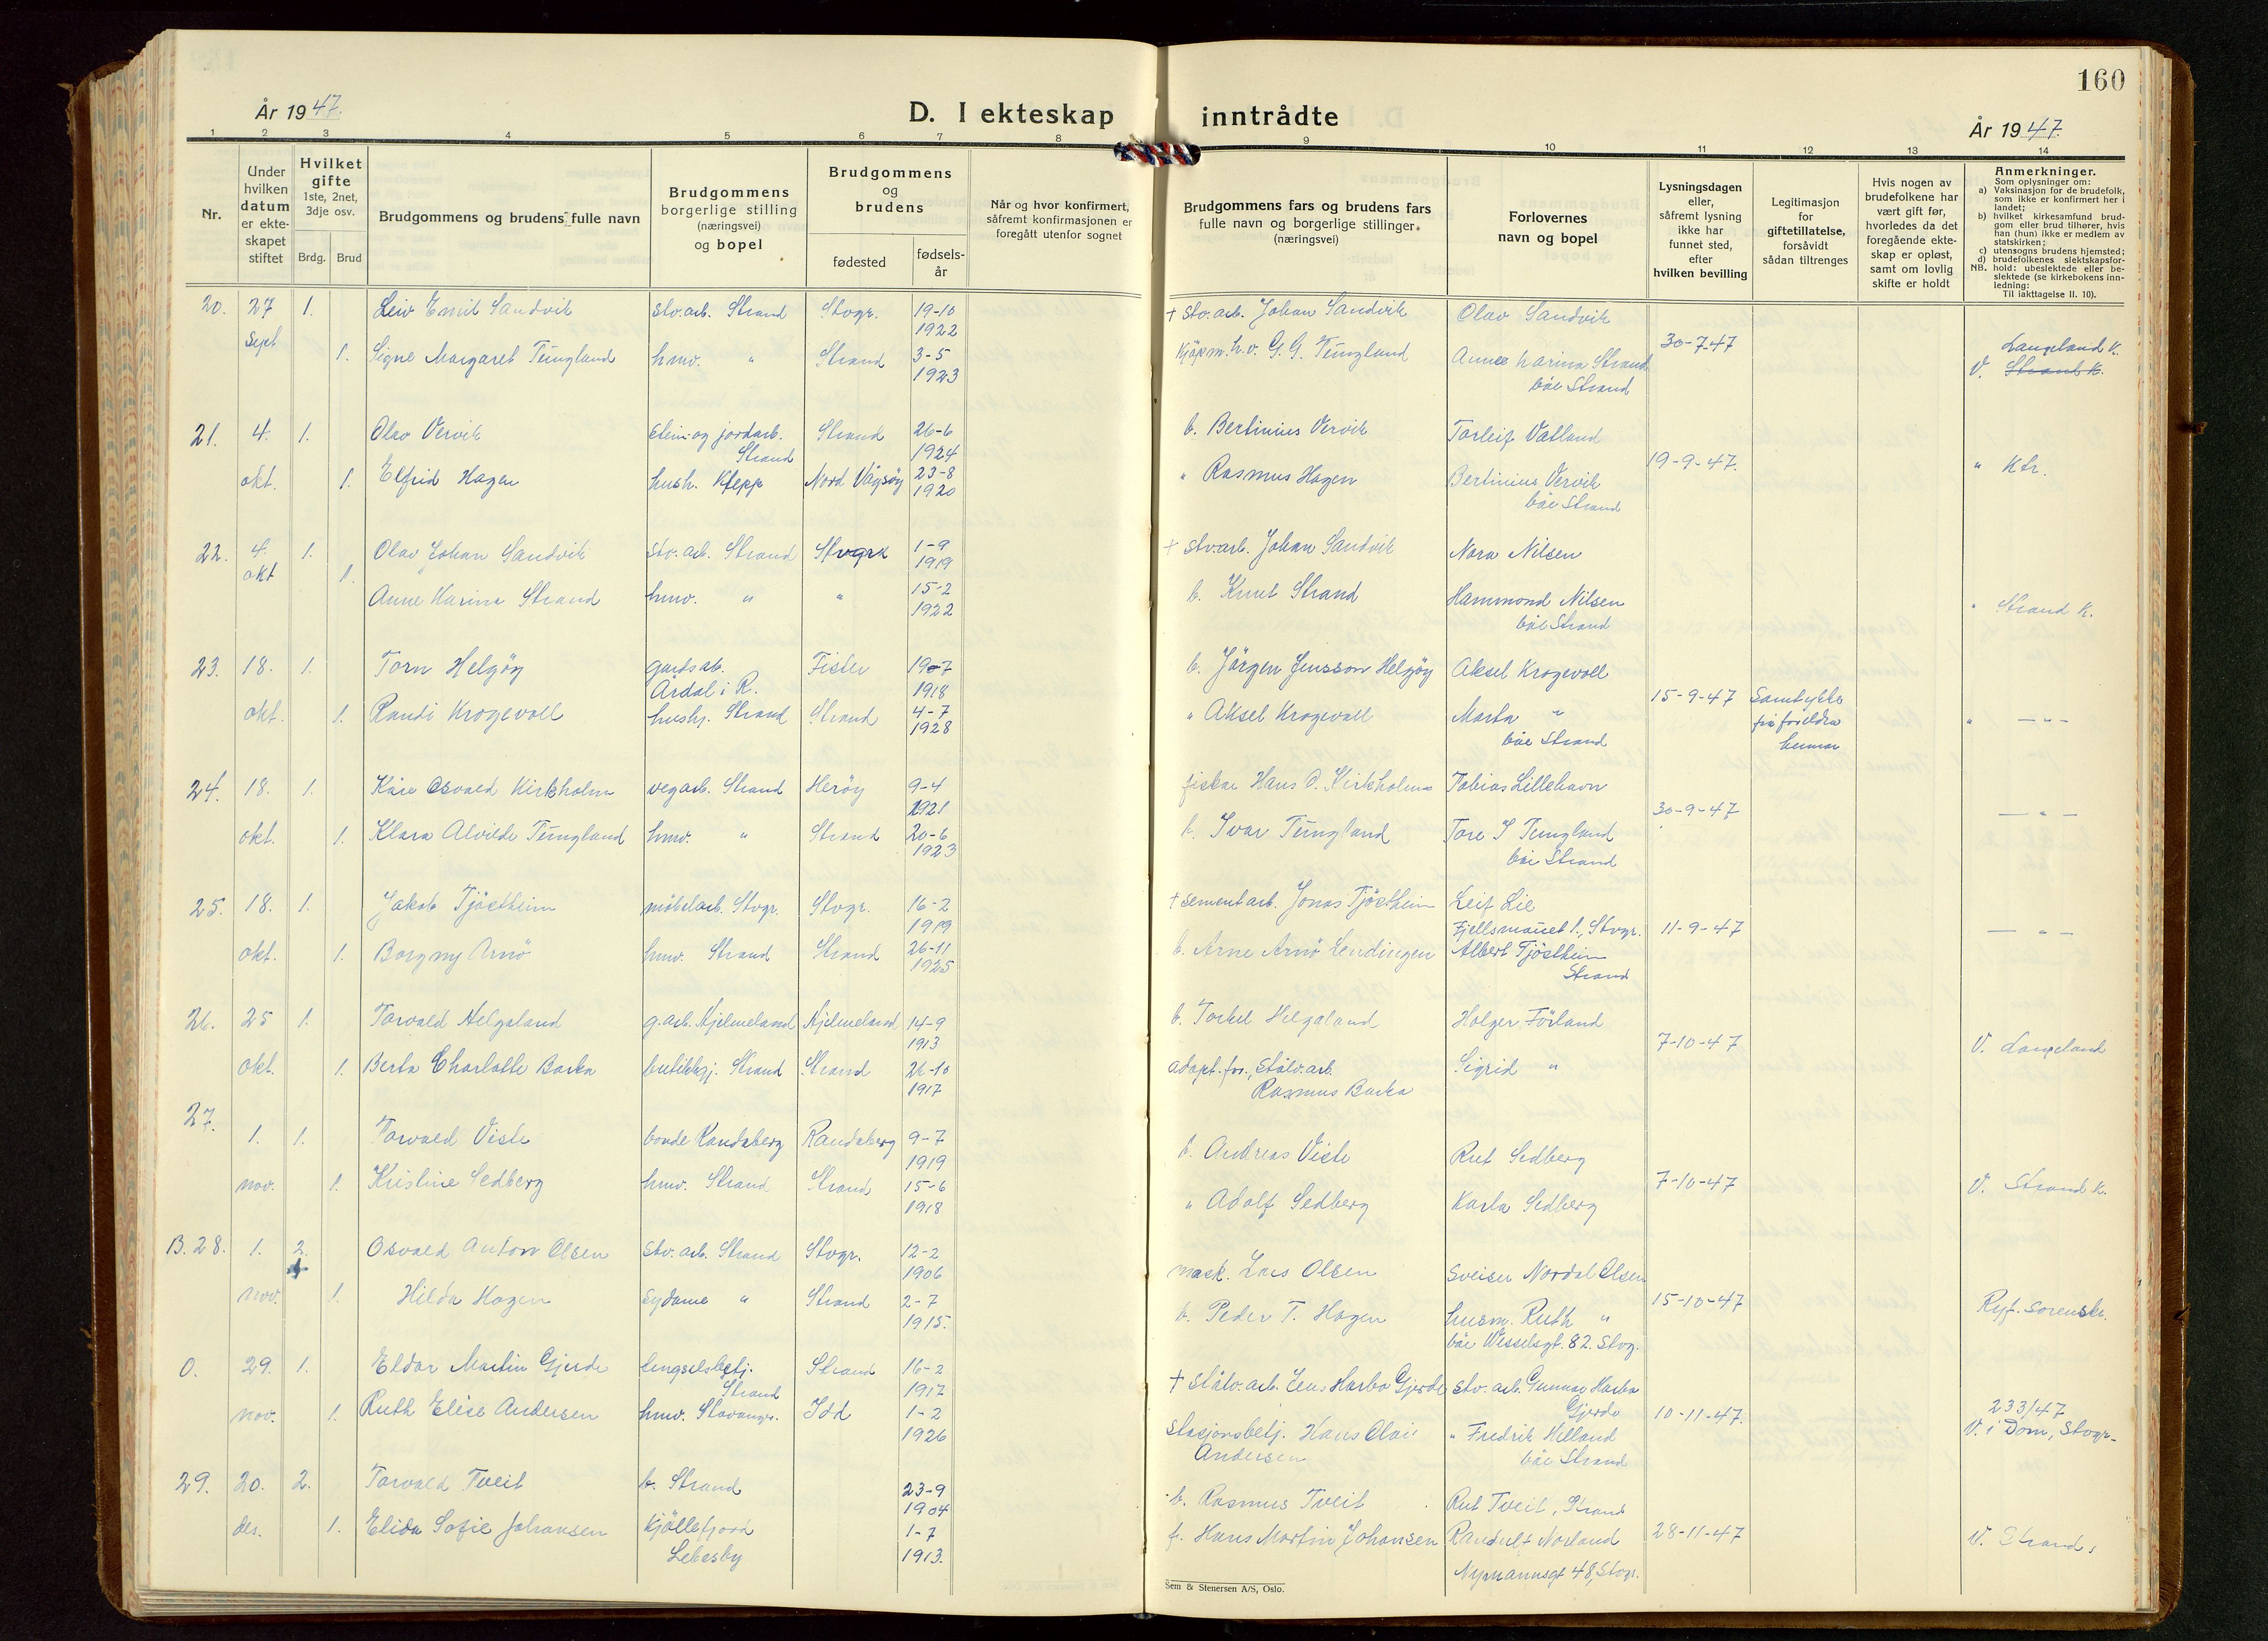 160
År 1947.
D. I ekteskap inntrådte
År 1947.
1 2 3 4 5 6 7 8 9 10 11 12 13 14
Nr.
Under hvilken datum er ekteskapet stiftet
Hvilket gifte
1ste, 2net, 3dje osv.
Brdg. Brud
Brudgommens og brudens fulle navn
Brudgommens borgerlige stilling (næringsvei) og bopel
Brudgommens og brudens
fødested
fødselsår
Når og hvor konfirmert, såfremt konfirmasjonen er foregått utenfor sognet
Brudgommens fars og brudens fars fulle navn og borgerlige stillinger (næringsvei)
Forlovernes navn og bopel
Lysningsdagen eller, såfremt lysning ikke har funnet sted, efter hvilken bevilling
Legitimasjon for giftetillatelse, forsåvidt sådan tiltrenges
Hvis nogen av brudefolkene har vært gift før, hvorledes da det foregående ekteskap er opløst, samt om lovlig skifte er holdt
Anmerkninger.
Som oplysninger om:
a) Vaksinasjon for de brudefolk, som ikke er konfirmert her i landet;
b) hvilket kirkesamfund brudgom eller brud tilhører, hvis han (hun) ikke er medlem av statskirken;
c) utensogns brudens hjemsted;
d) brudefolkenes slektskapsforhold: ubeslektede eller beslektede (se kirkebokens innledning:
NB. Til iakttagelse II. 10).
20. 27 1. Leiv Emil Sandvik stv.arb. Strand Stvgr. 19-10 1922 + stv.arb. Johan Sandvik Olav Sandvik
sept 1. Signe Margaret Tungland hmv. " Strand 3-5 1923 Kjøpm. h.v. G. G. Tungland Anna Karina Strand 30-7-47 Langeland K.
båe Strand V. Strand K.
21. 4. 1. Olav Vervik stein- og jordarb. Strand Strand 26-6 1924 b. Bertinius Vervik Torleif Vatland
19-9-47. " Ktr.
okt. 1. Elfrid Hagen hush. Klepp Nord Vågsøy 23-8 1920 " Rasmus Hagen Bertinius Vervik
båe Strand
22. 4. 1. Olav Johan Sandvik stv.arb. Strand Stvgr. 1-9 1919 + stv.arb. Johan Sandvik Nora Nilsen
okt 1. Anne Karina Strand hmv. " " 15-2 1922 b. Knut Strand Hammond Nilsen " Strand K.
båe Strand
23. 18. 1. Torn Helgøy gardsarb. Årdal i R. Fister 19-7 1918 b. Jørgen Jensson Helgøy Aksel Krogevoll
15-9-47 Samtykke
okt. 1. Randi Krogevoll hushj. Strand Strand 4-7 1928 " Aksel Krogevoll Marta " frå foreldra " — " —
båe Strand hennar
24. 18. 1. Kåre Osvald Kirkholm vegarb. Strand Herøy 9-4 1921 fiskar Hans O. Kirkholm Tobias Lillehavn
30-9-47 — " —
okt. 1. Klara Alvilde Tungland hmv. " Strand 20-6 1923 b. Ivar Tungland Tore I Tungland
båe Strand
25. 18. 1. Jakob Tjøstheim møbelarb. Stvgr. Stvgr. 16-2 1919 + sementarb. Jonas Tjøstheim Leif Lie
Fjellsmauet 1., Stvgr. 11-9-47 — " —
okt. 1. Borgny Arnø hmv. Strand Strand 26-11 1925 b. Arne Arnø Lendingen Albert Tjøstheim
Strand
26. 25 1. Torvald Helgaland g.arb. Hjelmeland Hjelmeland 14-9 1913 b. Torkel Helgaland Holger Førland
7-10-47 V. Langeland
okt. 1. Berta Charlotte Barka butikkgj. Strand Strand 26-10 1917 adopt.for., stålv.arb. Rasmus Barka Sigrid "
27. 1. 1. Torvald Viste bonde Randaberg Randaberg 9-7 1919 b. Andreas Viste Rut Sedberg
7-10-47 V. Strand K.
nov. 1. Kristine Sedberg hmv. Strand Strand 15-6 1918 " Adolf Sedberg Karla Sedberg
B. 28. 1. 2. Osvald Anton Olsen stv.arb. Strand Stvgr. 12-2 1906 mask. Lars Olsen sveiser Nordal Olsen
15-10-47 Ryf. sorenskr.
nov. 1. Hilda Hagen sydame " Strand 2-7 1915. b. Peder T. Hagen husm. Ruth "
båe Wesselsgt. 82. Stvg.
O. 29. 1. Eldar Martin Gjerde fengselsbetj. Strand Strand 16-2 1917 + stålv.arb. Jens Harbo Gjerde stv.arb. Gunnar Harbo Gjerde
10-11-47. 233/47
nov. 1. Ruth Elise Andersen hmv. Stavanger. Idd 1-2 1926 stasjonsbetj. Hans Olai Andersen " Fredrik Helland V. i Dom, Stvgr.
båe Strand
29. 20. 2. Torvald Tveit b. Strand 23-9 1904 b. Rasmus Tveit Rut Tveit, Strand
des. 1. Elida Sofie Johansen Kjøllefjord Lebesby 1-7 1913. f. Hans Martin Johansen Randulf Norland 28-11-47 V. Strand.
Nymannsgt 48, Stvgr.
Sem & Stenersen A/S, Oslo.